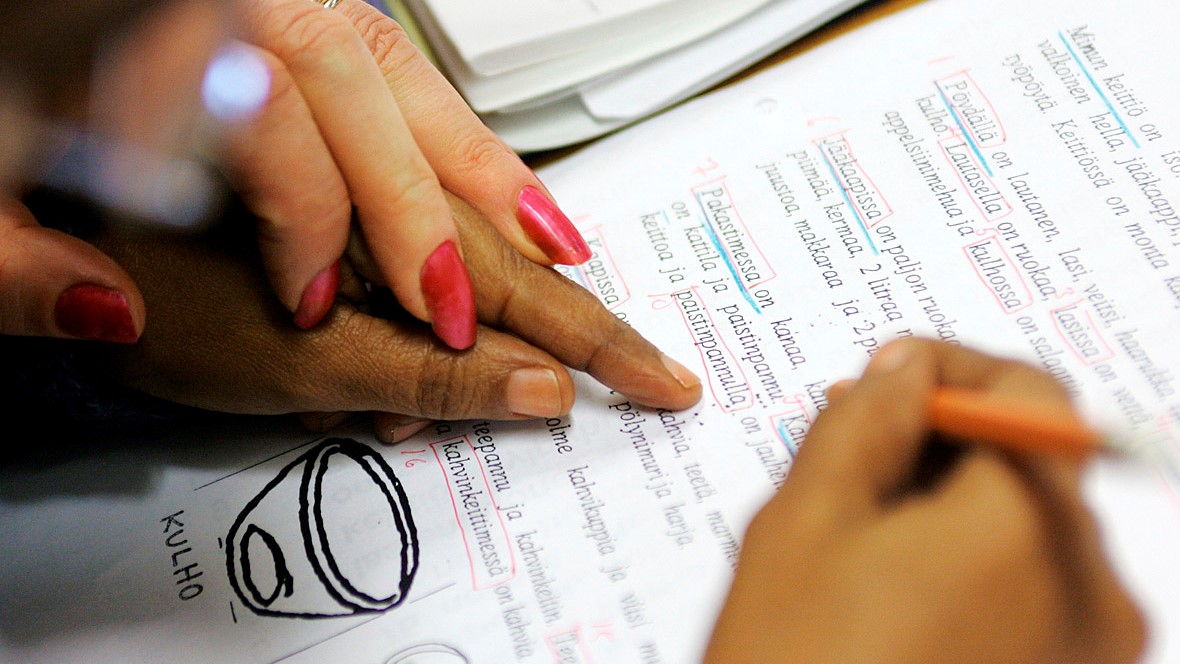 Minun keittiö on
valkoinen hella, jääkaappi,
työpöytä. Keittiössä on monta
1 Pöydällä on lautanen, lasi veisi, haarukka,
kulho. Lautasella on ruokaa, 3 lasissa on vettä
appelsiinimehua ja 5 kulhossa on
6 Jääkaapissa on paljon
piimää, kermaa, 2 litraa
juustoa, makkaraa ja 2
7 Pakastimessa on kanaa,
on kattila ja paistinpannu.
keittoa ja 10 paistinpannulla on
Kaapissa kahvia, teetä,
pölynimuri ja harja.
kolme kahvikuppia ja viisi
teepannu ja kahvinkeitin.
16 kahvinkeittimessä on kahvia
KULHO